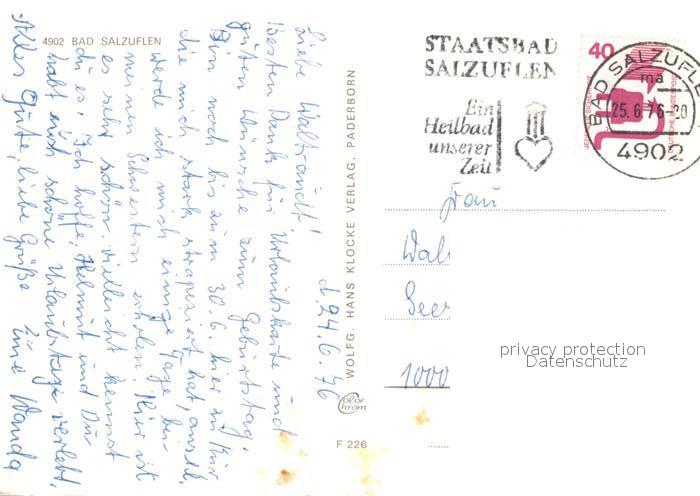 4902 BAD SALZUFLEN
d. 24.6.76
Liebe Waltraudt!
Besten Dank für Urlaubskarte und
guten Wünsche zum Geburtstag.
Bin noch bis zum 30.6. hier zu Kur
die mich stark strapaziert hat, anschl.
werde ich mich einige Tage bei
meinen Schwestern erholen. Hier ist
es sehr schön, vielleicht kennst
du es. Ich hoffe, Helmut und Du
habt auch schöne Urlaubstage verlebt.
Alles Gute, liebe Grüße
Eure Wanda
WOLFG. HANS KLOCKE VERLAG, PADERBORN
Color
chrom
F 226
STAATSBAD
SALZUFLEN
Ein
Heilbad
unserer
Zeit
40
BAD SALZUFLE
ma
25.6.76-20
4902
DEUTSCHE BUNDESPOST
Frau
Wal
Seer
1000
privacy protection
Datenschutz